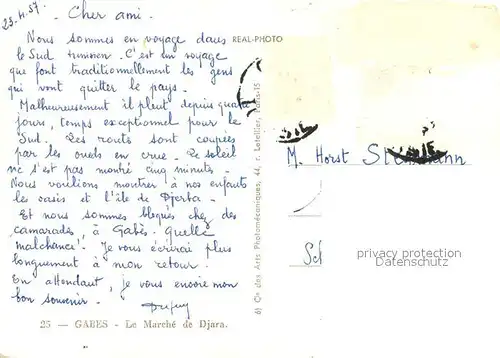 23.4.57.
- Cher ami -
Nous sommes en voyage dans
le Sud tunisien. C'est un voyage
que font traditionnellement les gens
qui vont quitter le pays.
Malheureusement il pleut depuis quatre
jours, temps exceptionnel pour le
Sud. Les routs sont coupées
par les oueds en crue. Le soleil
ne s'est pas montré cinq minutes.
Nous voulions montrer à nos enfants
les oasis et l'île de Djerba.
Et nous sommes bloqués chez des
camarades, à Gabès. Quelle
malchance! Je vous écrirai plus
longuement à mon retour.
En attendant, je vous envoie mon
bon souvenir.
25 — GABES - Le Marché de Djara.
REAL-PHOTO
Cie des Arts Photomécaniques, 44, r. Letellier, Paris-15
M. Horst
privacy protection
Datenschutz